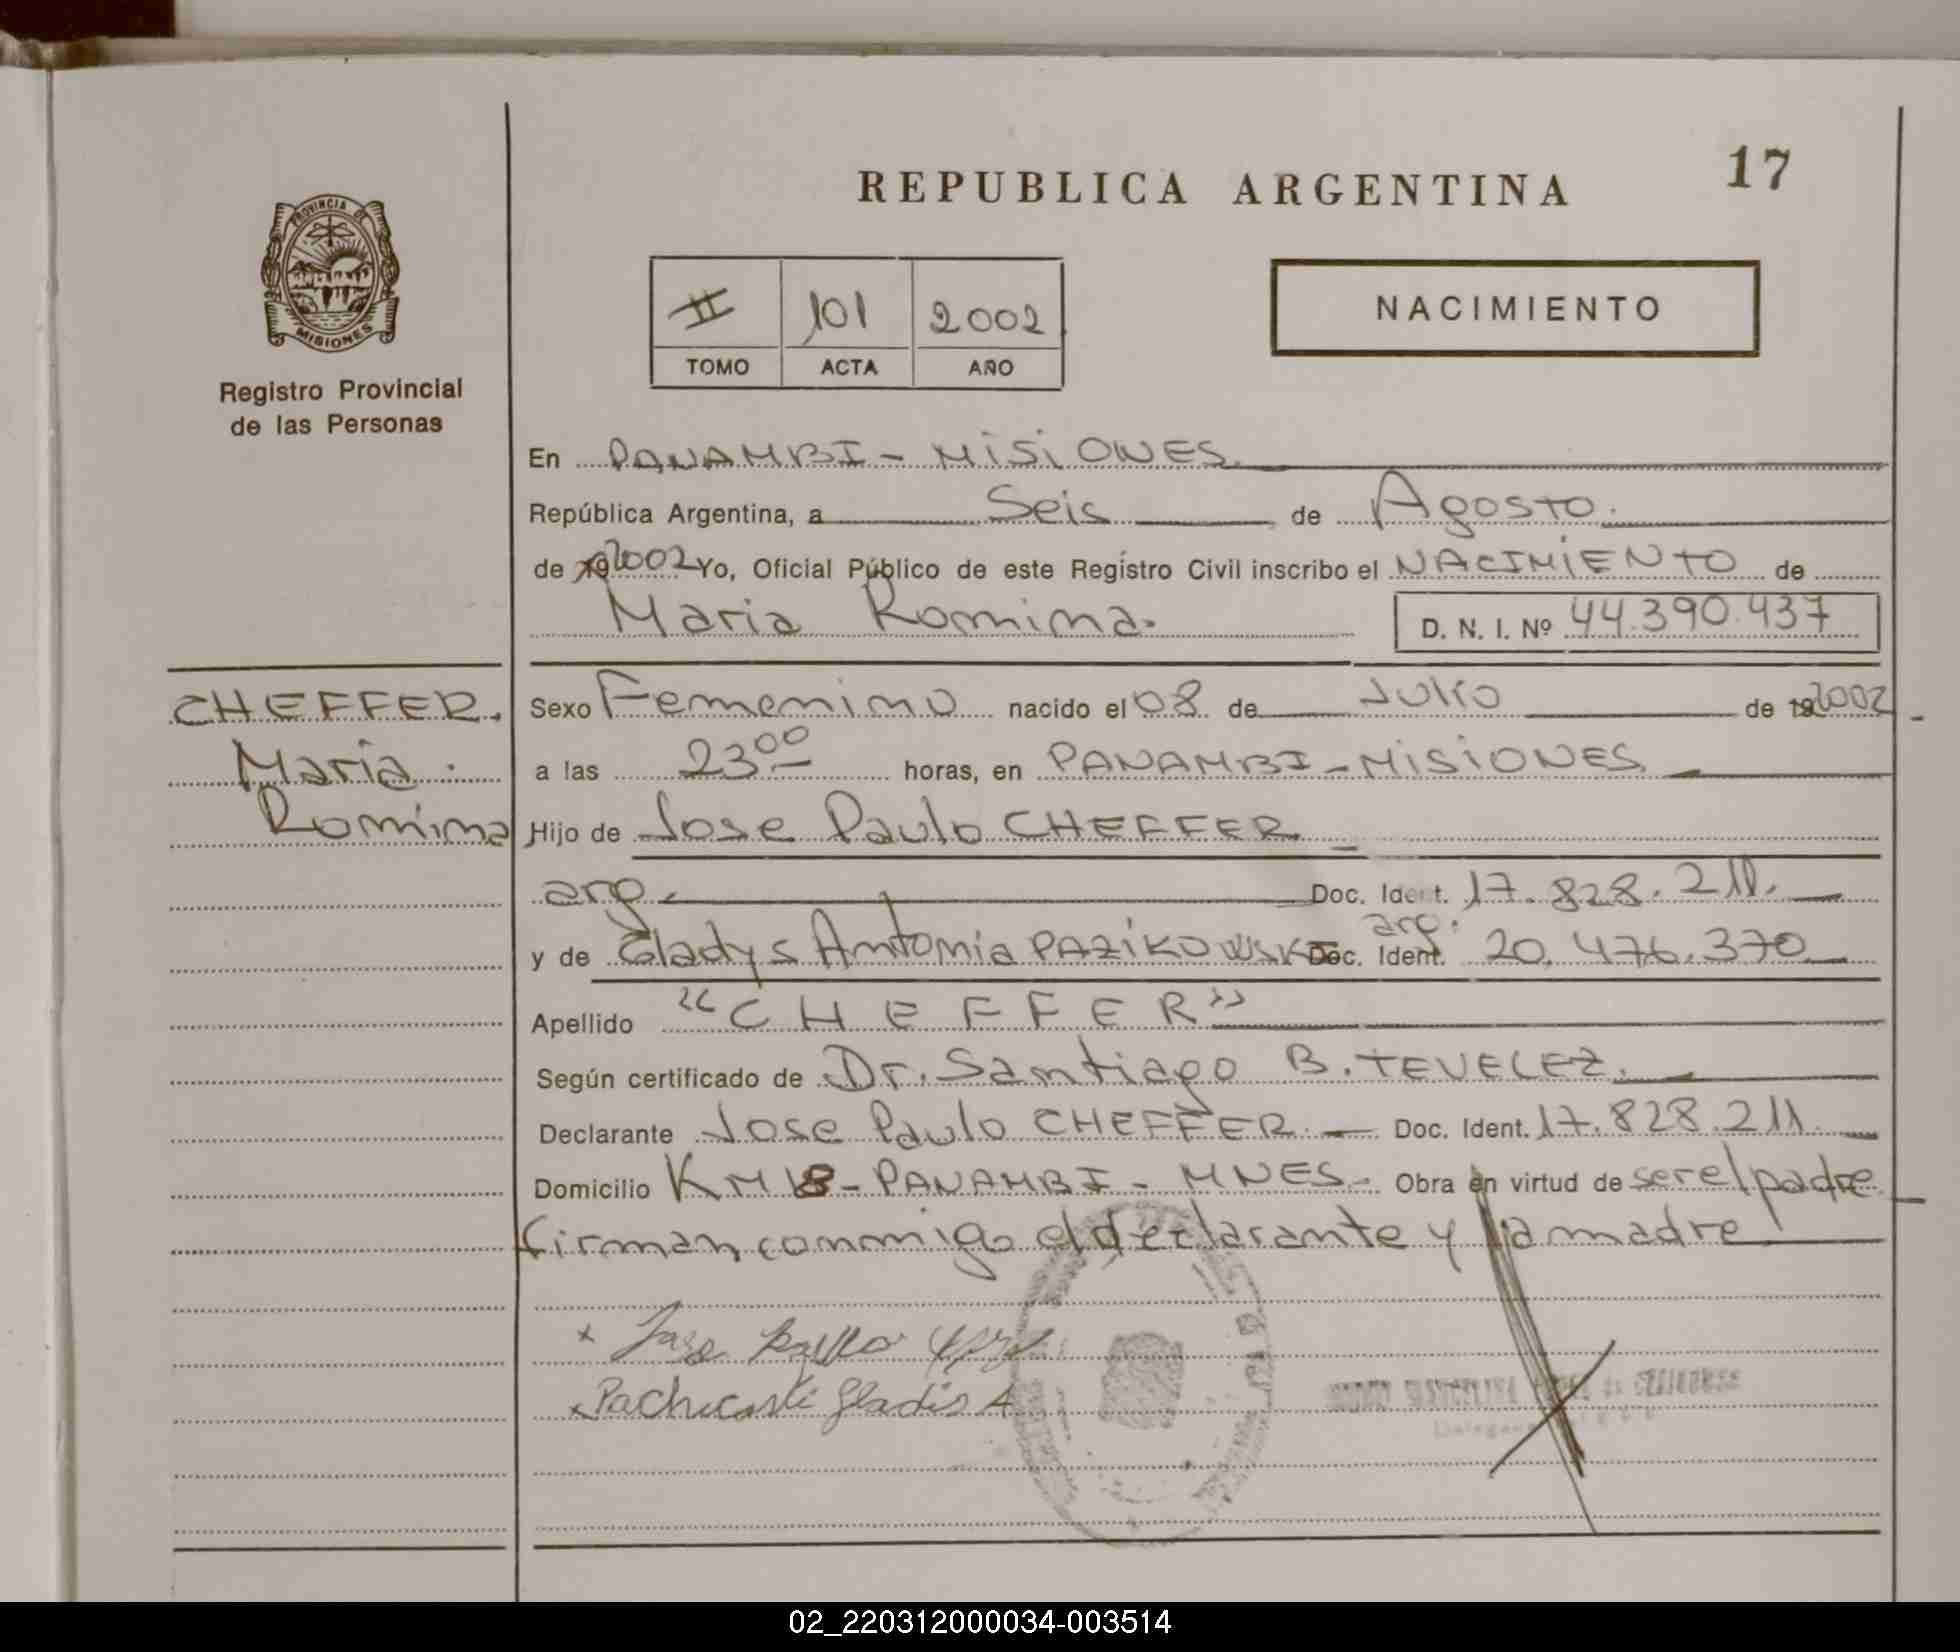 REPUBLICA ARGENTINA
17
PROVINCIA DE
MISIONES
Registro Provincial
de las Personas
II 101 2002
TOMO ACTA AÑO
NACIMIENTO
En PANAMBI - MISIONES
República Argentina, a Seis de Agosto.
de 192002 Yo, Oficial Público de este Registro Civil inscribo el NACIMIENTO de
Maria Romina. D. N. I. Nº 44.390.437
CHEFFER.
Maria
Romina
Sexo Femenino nacido el 08 de Julio de 192002
a las 23 00 horas, en PANAMBI - MISIONES
Hijo de Jose Paulo CHEFFER
arg. Doc. Ident. 17.828.211.
y de Gladys Antonia PAZIKOWSKI arg. Doc. Ident. 20.476.370
Apellido "CHEFFER"
Según certificado de Dr. Santiago B. TEVELEZ.
Declarante Jose Paulo CHEFFER. Doc. Ident. 17.828.211
Domicilio KM 18 - PANAMBI - MNES. Obra en virtud de ser el padre
firman conmigo el declarante y la madre
x Jose Paulo
x Gladis A
02_220312000034-003514